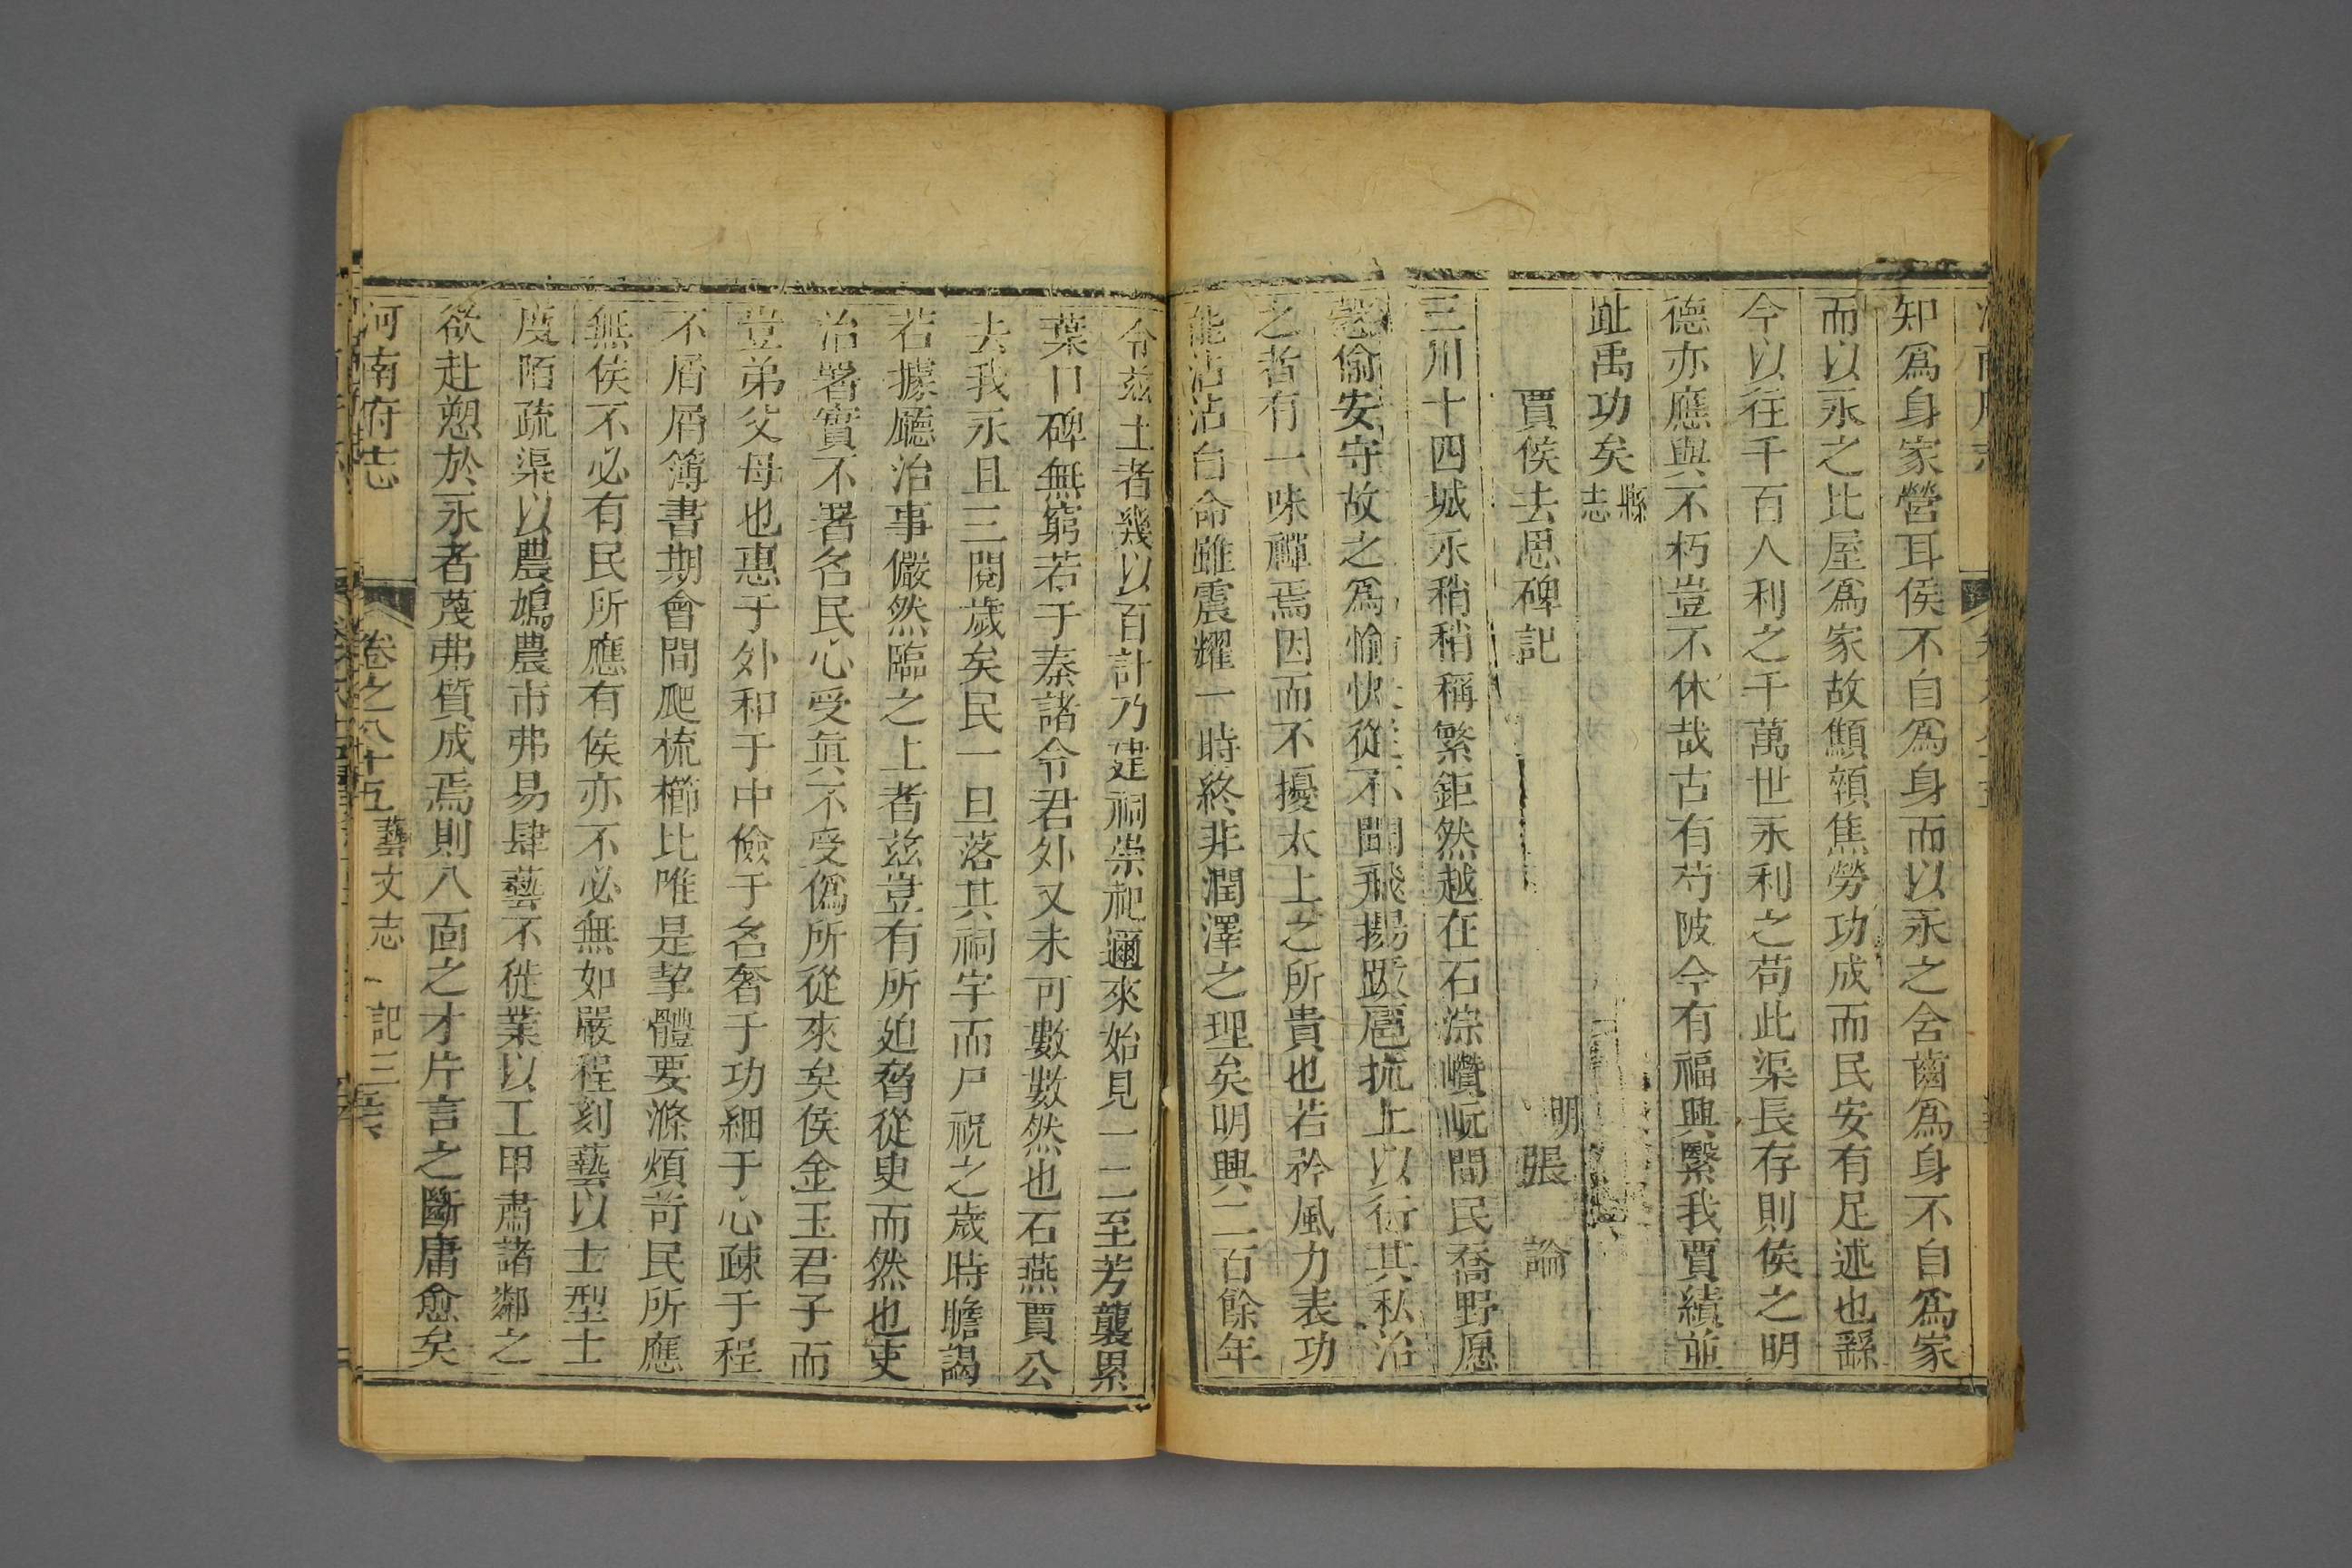 知爲身家營耳侯不自爲身而以永之含齒爲身不自爲家
而以永之比屋爲家故顦顇焦勞功成而民安有足述也繇
今以往千百人利之千萬世永利之苟此渠長存則侯之明
德亦應與不朽豈不休哉古有芍陂今有福興繄我賈績並
趾禹功矣縣志
賈侯去思碑記 明張論
三川十四城永稍稍稱繁鉅然越在石淙巑岏間民喬野愿
慤偷安守故之爲愉快從不聞飛揚跋扈抗上以衍其私治
之者有一味禪焉因而不擾太上之所貴也若矜風力表功
能沾沾自命雖震耀一時終非潤澤之理矣明興二百餘年
令兹土者幾以百計乃建祠崇祀邇來始見一二至芳襲累
葉口碑無窮若于秦諸令君外又未可數數然也石燕賈公
去我永且三閱歲矣民一旦落其祠宇而尸祝之歲時瞻謁
若據廳治事儼然臨之上者兹豈有所廹脅從臾而然也吏
治署實不署名民心受眞不受僞所從來矣侯金玉君子而
豈弟父母也惠于外和于中儉于名奢于功細于心疎于程
不屑屑簿書期會間爬梳櫛比唯是挈體要滌煩苛民所應
無侯不必有民所應有侯亦不必無如嚴程刻藝以士型士
度陌疏渠以農鳩農市弗易肆藝不徙業以工甲肅諸鄰之
欲赴愬於永者蔑弗質成焉則八面之才片言之斷庸愈矣
河南府志 卷之八十五 藝文志 記三